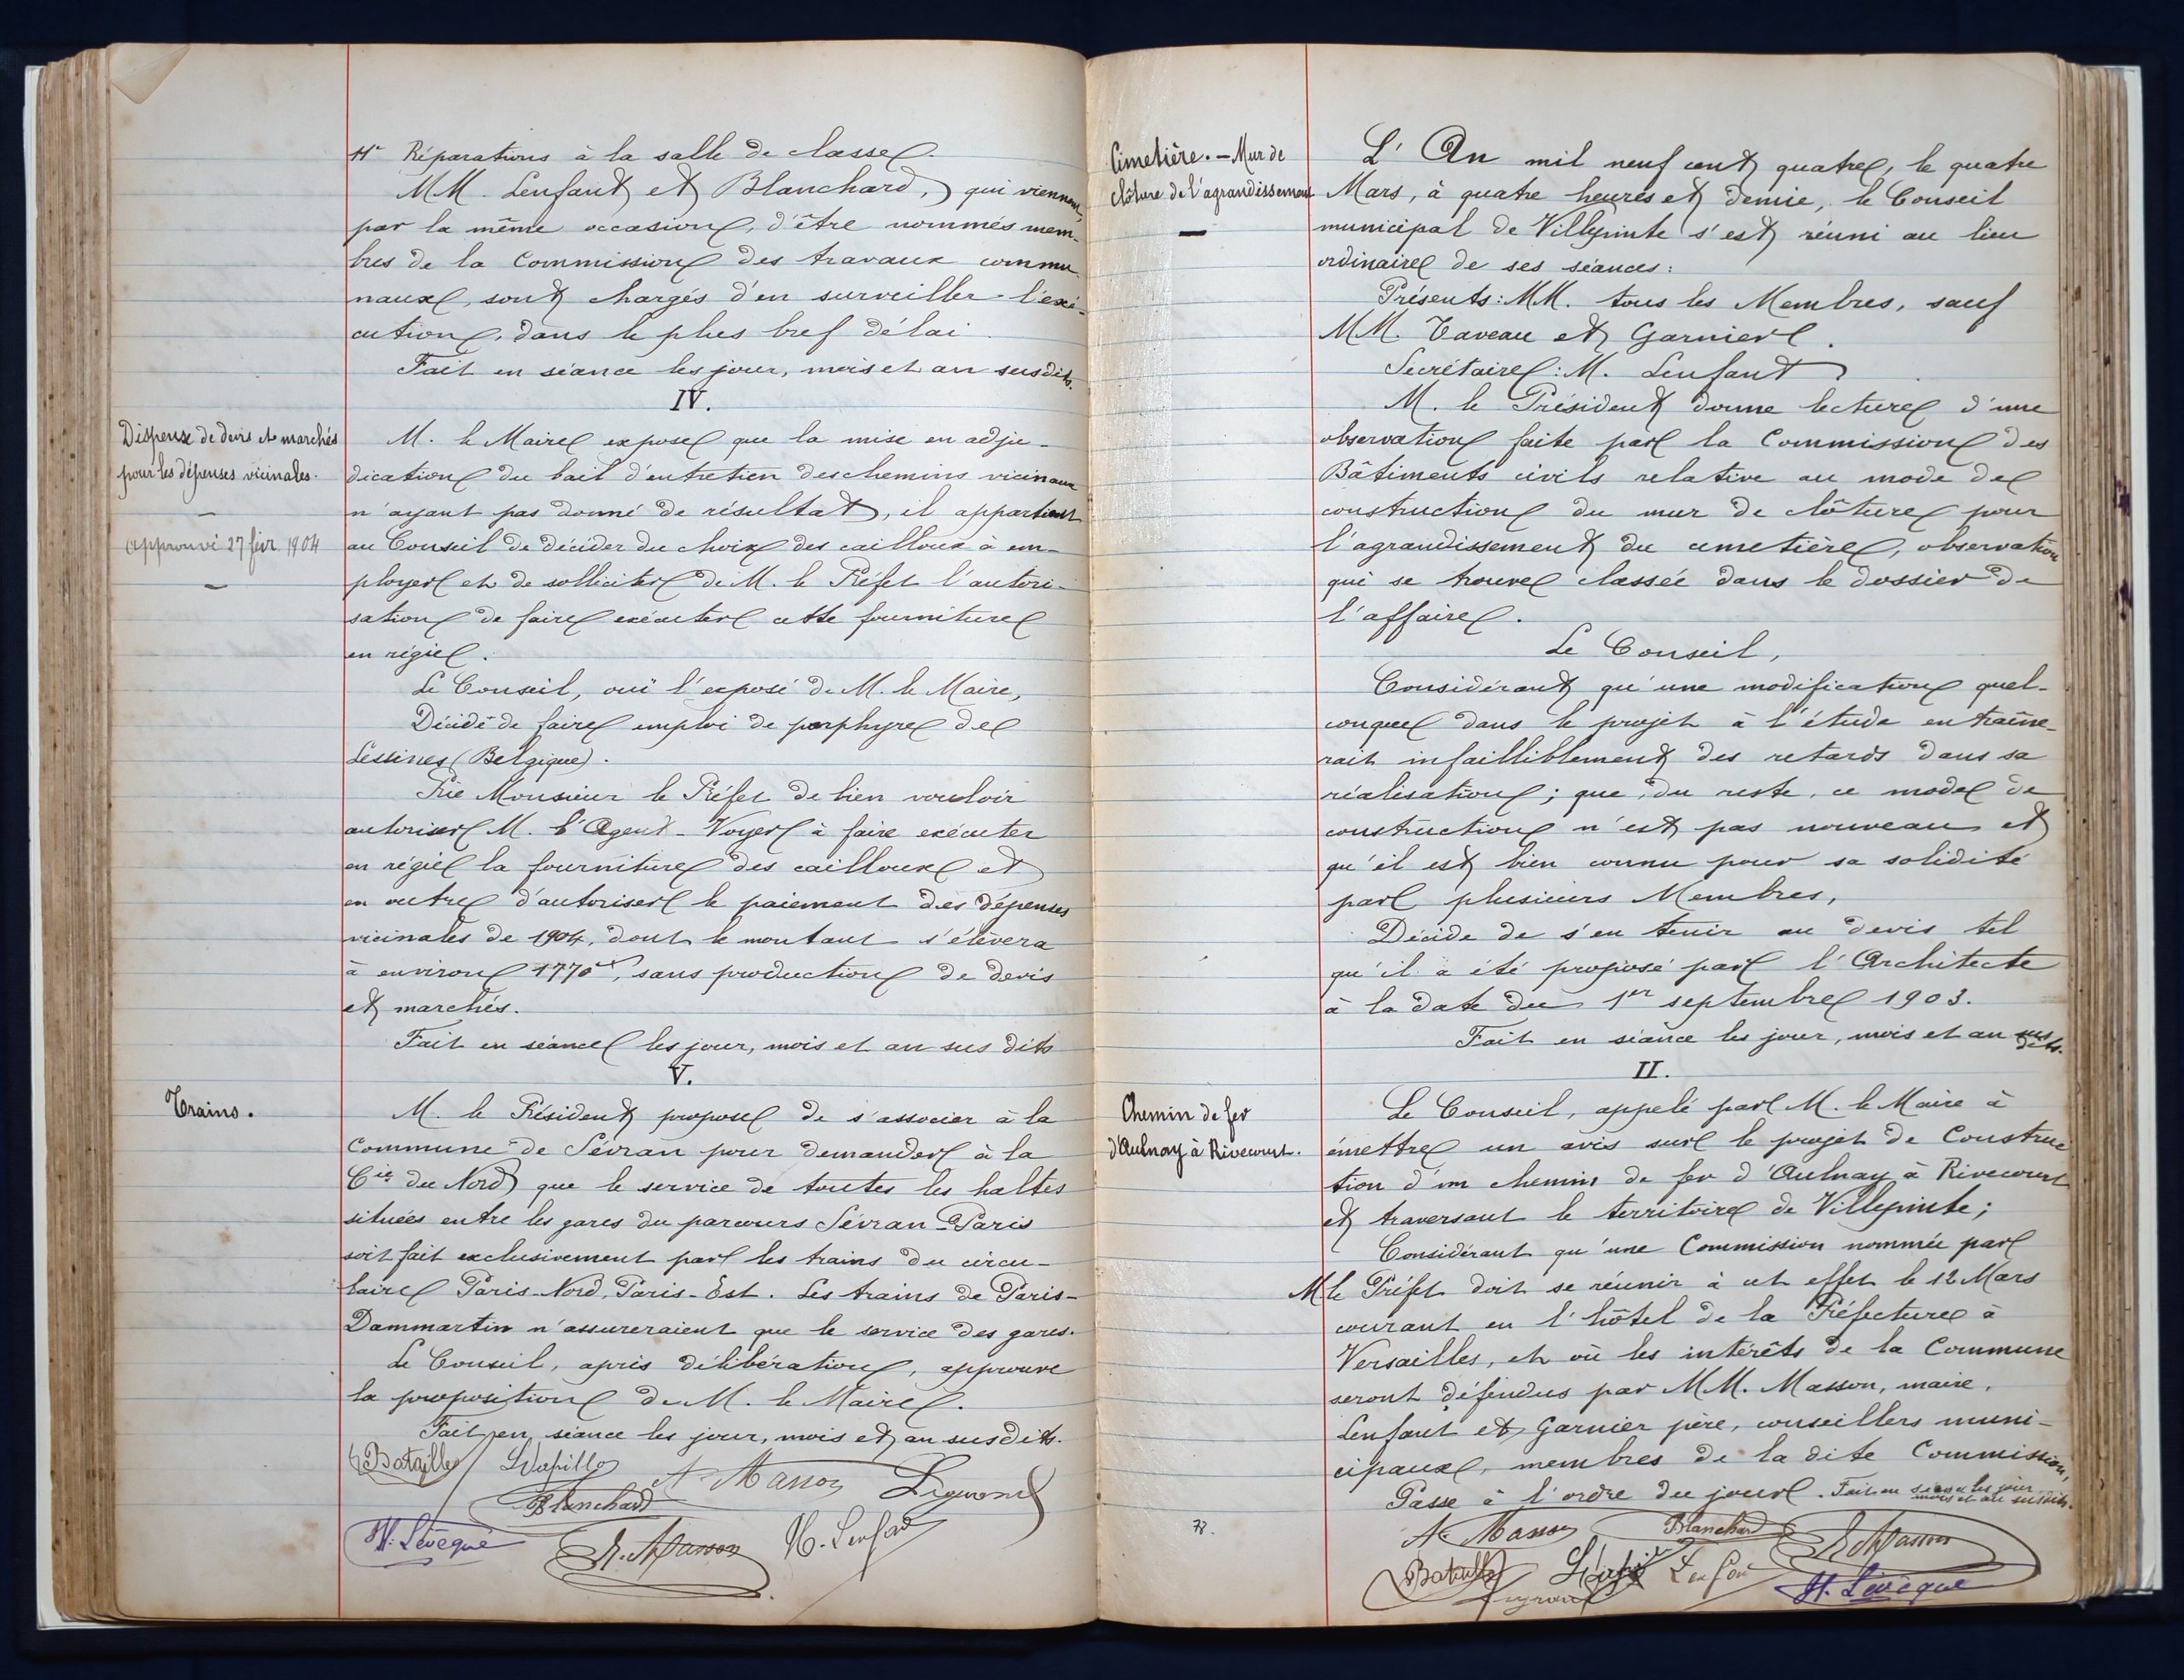 4° Réparations à la salle de classe.
MM. Lenfant et Blanchard, qui viennent,
par la même occasion, d'être nommés mem-
bres de la Commission des travaux commu-
naux, sont chargés d'en surveiller l'exé-
cution, dans le plus bref délai.
Fait en séance les jour, mois et an susdits.
IV.
Dispense de devis et marchés
pour les dépenses vicinales.
—
Approuvé 27 févr. 1904
—
M. le Maire expose que la mise en adju-
dication du bail d'entretien des chemins vicinaux
n'ayant pas donné de résultat, il appartient
au Conseil de décider du choix des cailloux à em-
ployer et de solliciter de M. le Préfet l'autori-
sation de faire exécuter cette fourniture
en régie.
Le Conseil, ouï l'exposé de M. le Maire,
Décide de faire emploi de porphyre de
Lessines (Belgique).
Prie Monsieur le Préfet de bien vouloir
autoriser M. l'Agent-Voyer à faire exécuter
en régie la fourniture des cailloux et
en outre d'autoriser le paiement des dépenses
vicinales de 1904, dont le montant s'élèvera
à environ 1770 f, sans production de devis
et marchés.
Fait en séance les jour, mois et an susdits
V.
Trains.
M. le Président propose de s'associer à la
Commune de Sévran pour demander à la
Cie du Nord que le service de toutes les haltes
situées entre les gares du parcours Sévran-Paris
soit fait exclusivement par les trains du circu-
laire Paris-Nord, Paris-Est. Les trains de Paris-
Dammartin n'assureraient que le service des gares.
Le Conseil, après délibération, approuve
la proposition de M. le Maire.
Fait en séance les jour, mois et an susdits.
Bataille
A. Masson
Blanchard
H. Lévèque
R. Masson
H. Lenfant
Cimetière. — Mur de
clôture de l'agrandissement
—
L'An mil neuf cent quatre, le quatre
Mars, à quatre heures et demie, le Conseil
municipal de Villepinte s'est réuni au lieu
ordinaire de ses séances:
Présents: MM. tous les Membres, sauf
MM. Taveau et Garnier.
Secrétaire: M. Lenfant
M. le Président donne lecture d'une
observation faite par la Commission des
Bâtiments civils relative au mode de
construction du mur de clôture pour
l'agrandissement du cimetière, observation
qui se trouve classée dans le dossier de
l'affaire.
Le Conseil,
Considérant qu'une modification quel-
conque dans le projet à l'étude entraîne-
rait infailliblement des retards dans sa
réalisation; que, du reste, ce mode de
construction n'est pas nouveau et
qu'il est bien connu pour sa solidité
par plusieurs Membres,
Décide de s'en tenir au devis tel
qu'il a été proposé par l'Architecte
à la date du 1er septembre 1903.
Fait en séance les jour, mois et an susdits.
II.
Chemin de fer
d'Aulnay à Rivecourt.
Le Conseil, appelé par M. le Maire à
émettre un avis sur le projet de Construc
tion d'un chemin de fer d'Aulnay à Rivecourt
et traversant le territoire de Villepinte;
Considérant qu'une Commission nommée par
M. le Préfet doit se réunir à cet effet le 12 Mars
courant en l'hôtel de la Préfecture à
Versailles, et où les intérêts de la Commune
seront défendus par MM. Masson, maire,
Lenfant et Garnier père, conseillers muni-
cipaux, membres de la dite Commission,
Passe à l'ordre du jour. Fait en séance les jour
mois et an susdits.
A. Masson
Blanchard
R. Masson
Bataille
Lenfant
H. Lévèque